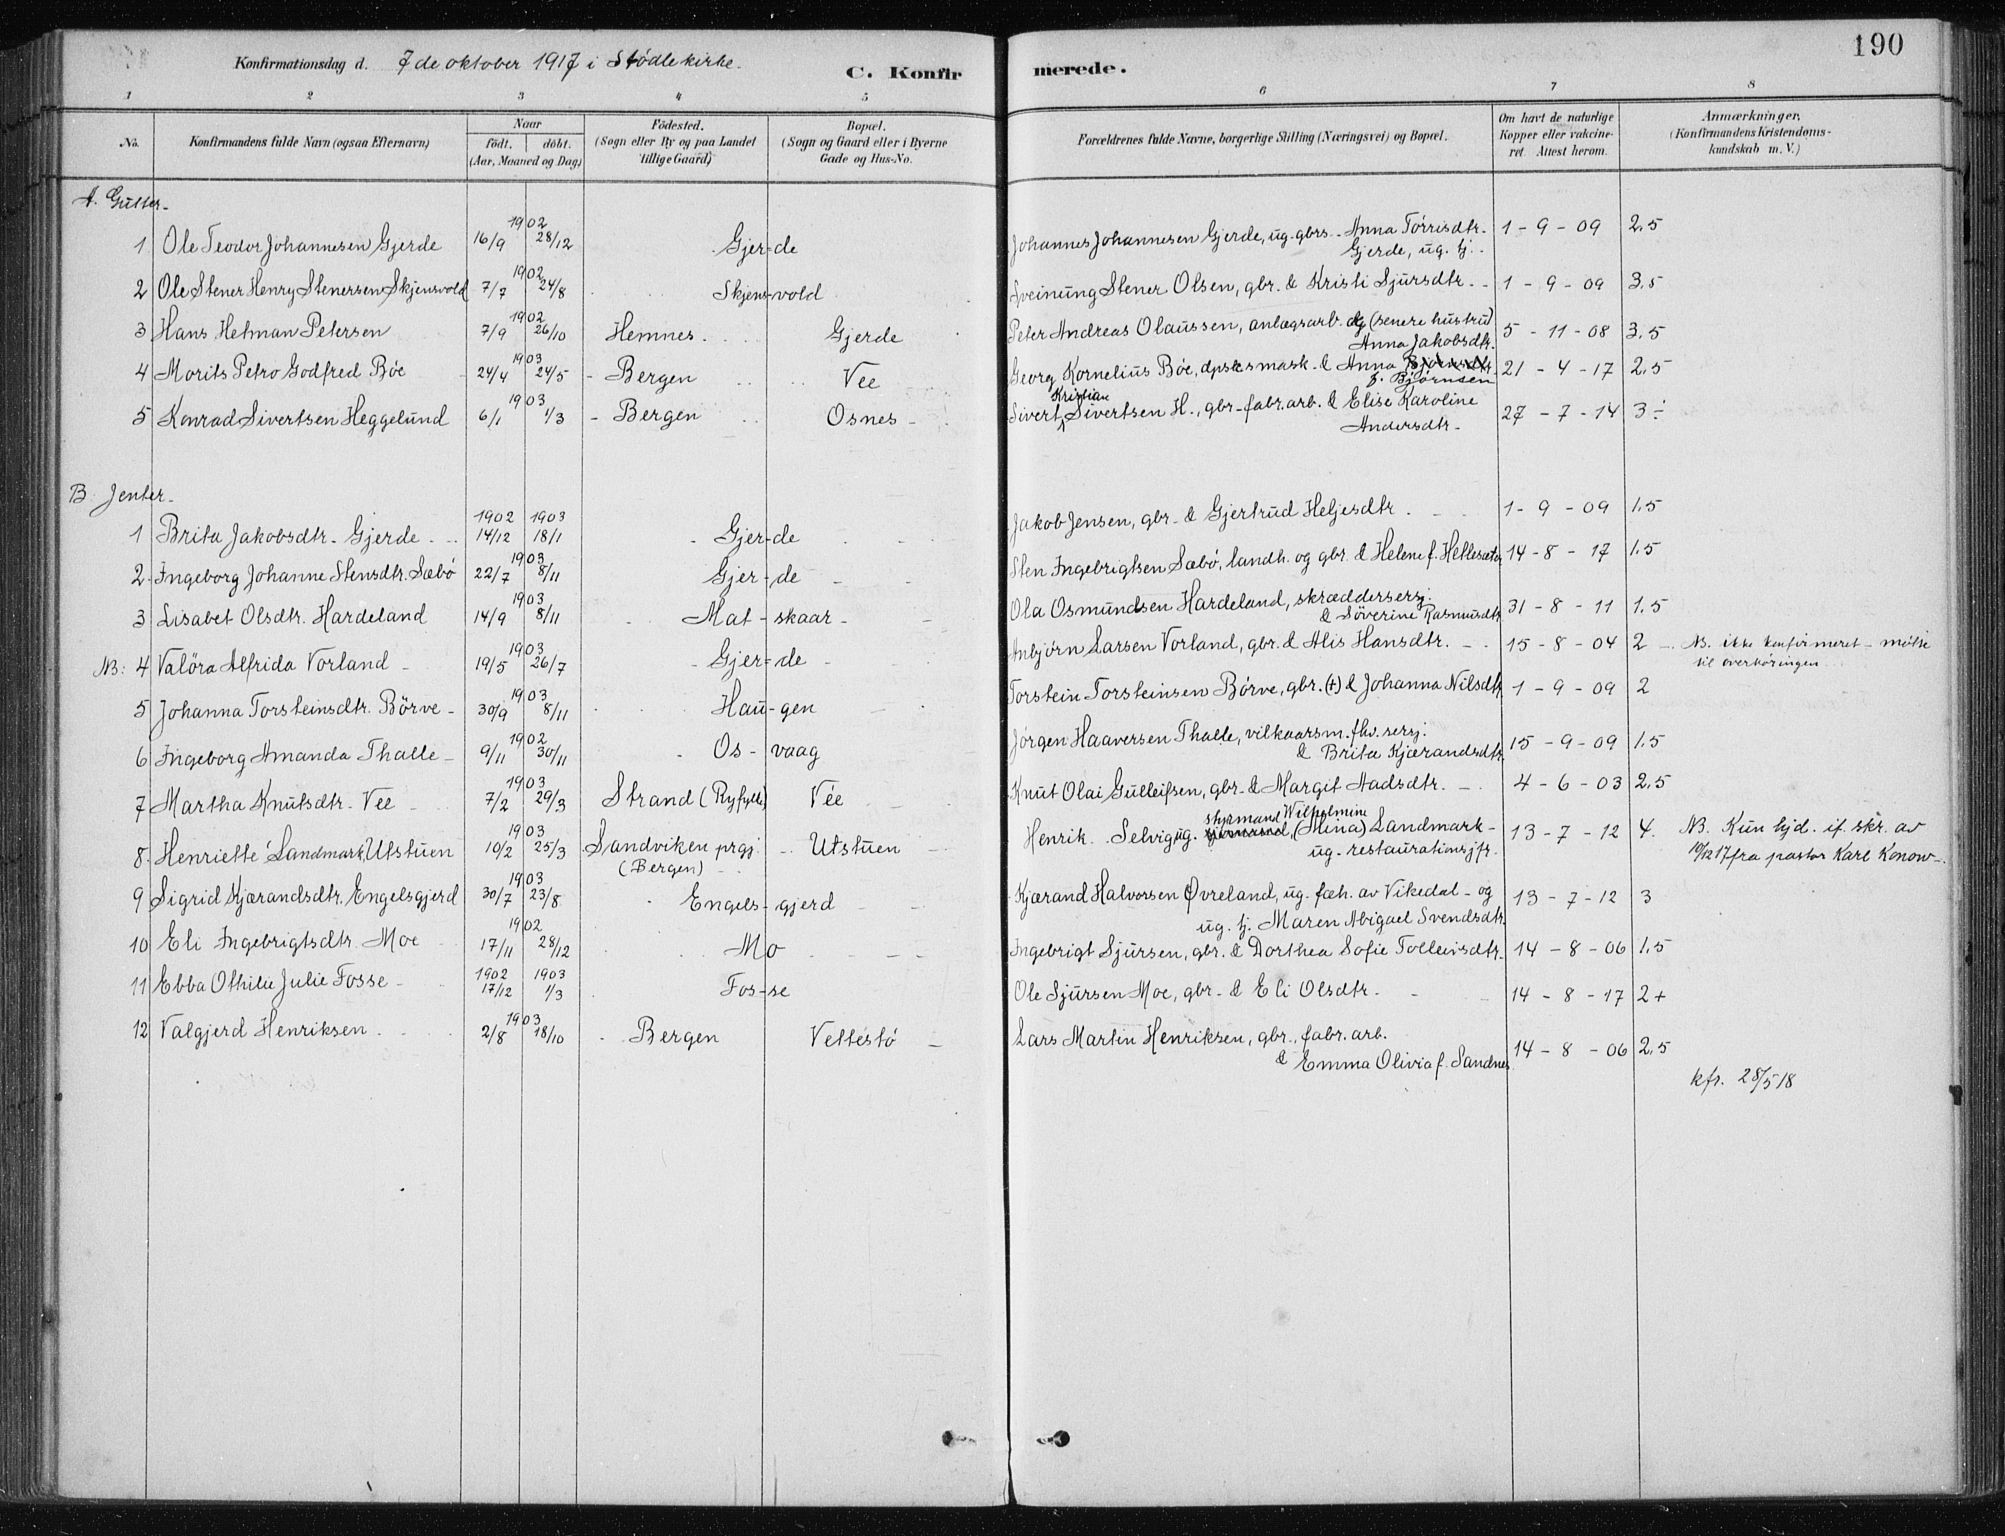 190
Konfirmationsdag d. 7de oktober 1917 i Stødle kirke.
C. Konfirmerede.
1 2 3 4 5 6 7 8
No. Konfirmandens fulde Navn (ogsaa Efternavn) Naar født. døbt. (Aar, Maaned og Dag) Fødested. (Sogn eller By og paa Landet tillige Gaard) Bopæl. (Sogn og Gaard eller i Byerne Gade og Hus-No. Forældrenes fulde Navne, borgerlige Stilling (Næringsvei) og Bopæl. Om havt de naturlige Kopper eller vakcineret. Attest herom. Anmærkninger, (Konfirmandens Kristendomskundskab m. V.)
A. Gutter.
1 Ole Teodor Johannesen Gjerde 1902 16/9 28/12 Gjerde Johannes Johannesen Gjerde, ug. gbrs. - Anna Tórrisdtr. Gjerde, ug. tj. 1-9-09 2.5
2 Ole Stener Henry Stenersen Skjensvold 1902 7/7 24/8 Skjensvold Sveinung Stener Olsen, gbr. & Kristi Sjursdtr. 1-9-09 3.5
3 Hans Hetman Petersen 1902 7/9 26/10 Hemnes Gjerde Peter Andreas Olaussen, anlægsarb. og (senere hustru) Anna Jakobsdtr. 5-11-08 3.5
4 Morits Petro Godfred Bóe 1903 24/4 24/5 Bergen Vee Georg Kornelius Bóe, dpsksmask. & Anna f. Bjørnsen 21-4-17 2.5
5 Konrad Sivertsen Heggelund 1903 6/1 1/3 Bergen Osnes Sivert Kristian Sivertsen H., gbr. fabr.arb. & Elise Karoline Andersdtr. 27-7-14 3÷
B. Jenter.
1 Brita Jakobsdtr. Gjerde 1902 14/12 1903 18/1 Gjerde Jakob Jensen, gbr. & Gjertrud Heljesdtr. 1-9-09 1.5
2 Ingeborg Johanne Stensdtr. Sæbó 1903 22/7 8/11 Gjerde Sten Ingebrigtsen Sæbó, landh. og gbr. & Helene f. Hettesæter 14-8-17 1.5
3 Lisabet Olsdtr. Hardeland 1903 14/9 8/11 Matskaar Ola Osmundsen Hardeland, skræddersersj. & Söverine Rasmusdtr. 31-8-11 1.5
NB: 4 Valöra Alfrida Vorland 1903 19/5 26/7 Gjerde Anbjørn Larsen Vorland, gbr. & Alis Hansdtr. 15-8-04 2 NB. ikke konfirmeret - møtte til overhöringen
5 Johanna Torsteinsdtr. Börve 1903 30/9 8/11 Haugen Torstein Torsteinsen Bórve, gbr. (+) & Johanna Nilsdtr. 1-9-09 2
6 Ingeborg Amanda Thalle 1902 9/11 30/11 Osvaag Jørgen Haaversen Thalle, vilkaarsm. fhv. sersj. & Brita Kjærandsdtr. 15-9-09 1.5
7 Martha Knutsdtr. Vee 1903 7/2 29/3 Strand (Ryfylke) Vée Knut Olai Gulleifsen, gbr. & Margit Aadsdtr. 4-6-03 2.5
8. Henriette Landmark, Utstuen 1903 10/2 25/3 Sandviken prgj. (Bergen) Utstuen Henrik Selvig ug. styrmand, Wilhelmine (Mina) Landmark - ug. restaurationsjfr. 13-7-12 4. NB. Kun hjd. if. skr. av 19/12 17 fra pastor Karl Konow
9 Sigrid Kjærandsdtr. Engelsgjerd 1903 30/7 23/8 Engelsgjerd Kjærand Halvorsen Øvreland, ug. fæh. av Vikedal - og ug. tj. Maren Abigael Svendsdtr. 13-7-12 3
10 Eli Ingebrigtsdtr. Moe 1902 17/11 28/12 Mo Ingebrigt Sjursen, gbr. & Dorthea Sofie Tolleivsdtr. 14-8-06 1.5
11 Ebba Othilie Julie Fosse 1902 17/12 1903 1/3 Fosse Ole Sjursen Moe, gbr. & Eli Olsdtr. 14-8-17 2+
12 Valgjerd Henriksen 1903 2/8 18/10 Bergen Vettestó Lars Martin Henriksen, gbr., fabr. arb. & Emma Olivia f. Sandnes 14-8-06 2.5
kfr. 28/5 18